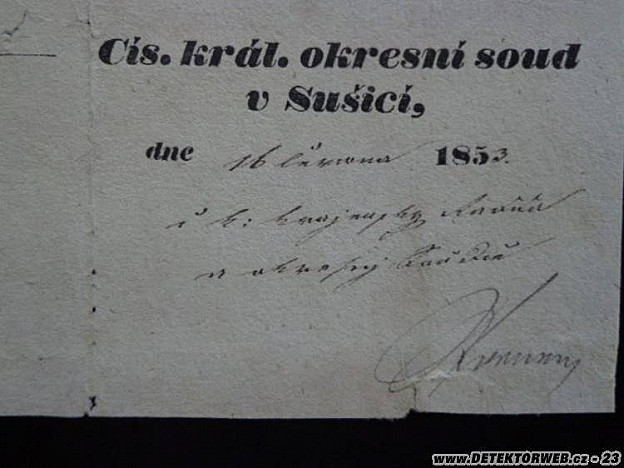 Cís. král. okresní soud
v Sušici,
dne 16 června 1853.
c k: krajenský
a okresný
www.DETEKTORWEB.cz - 23